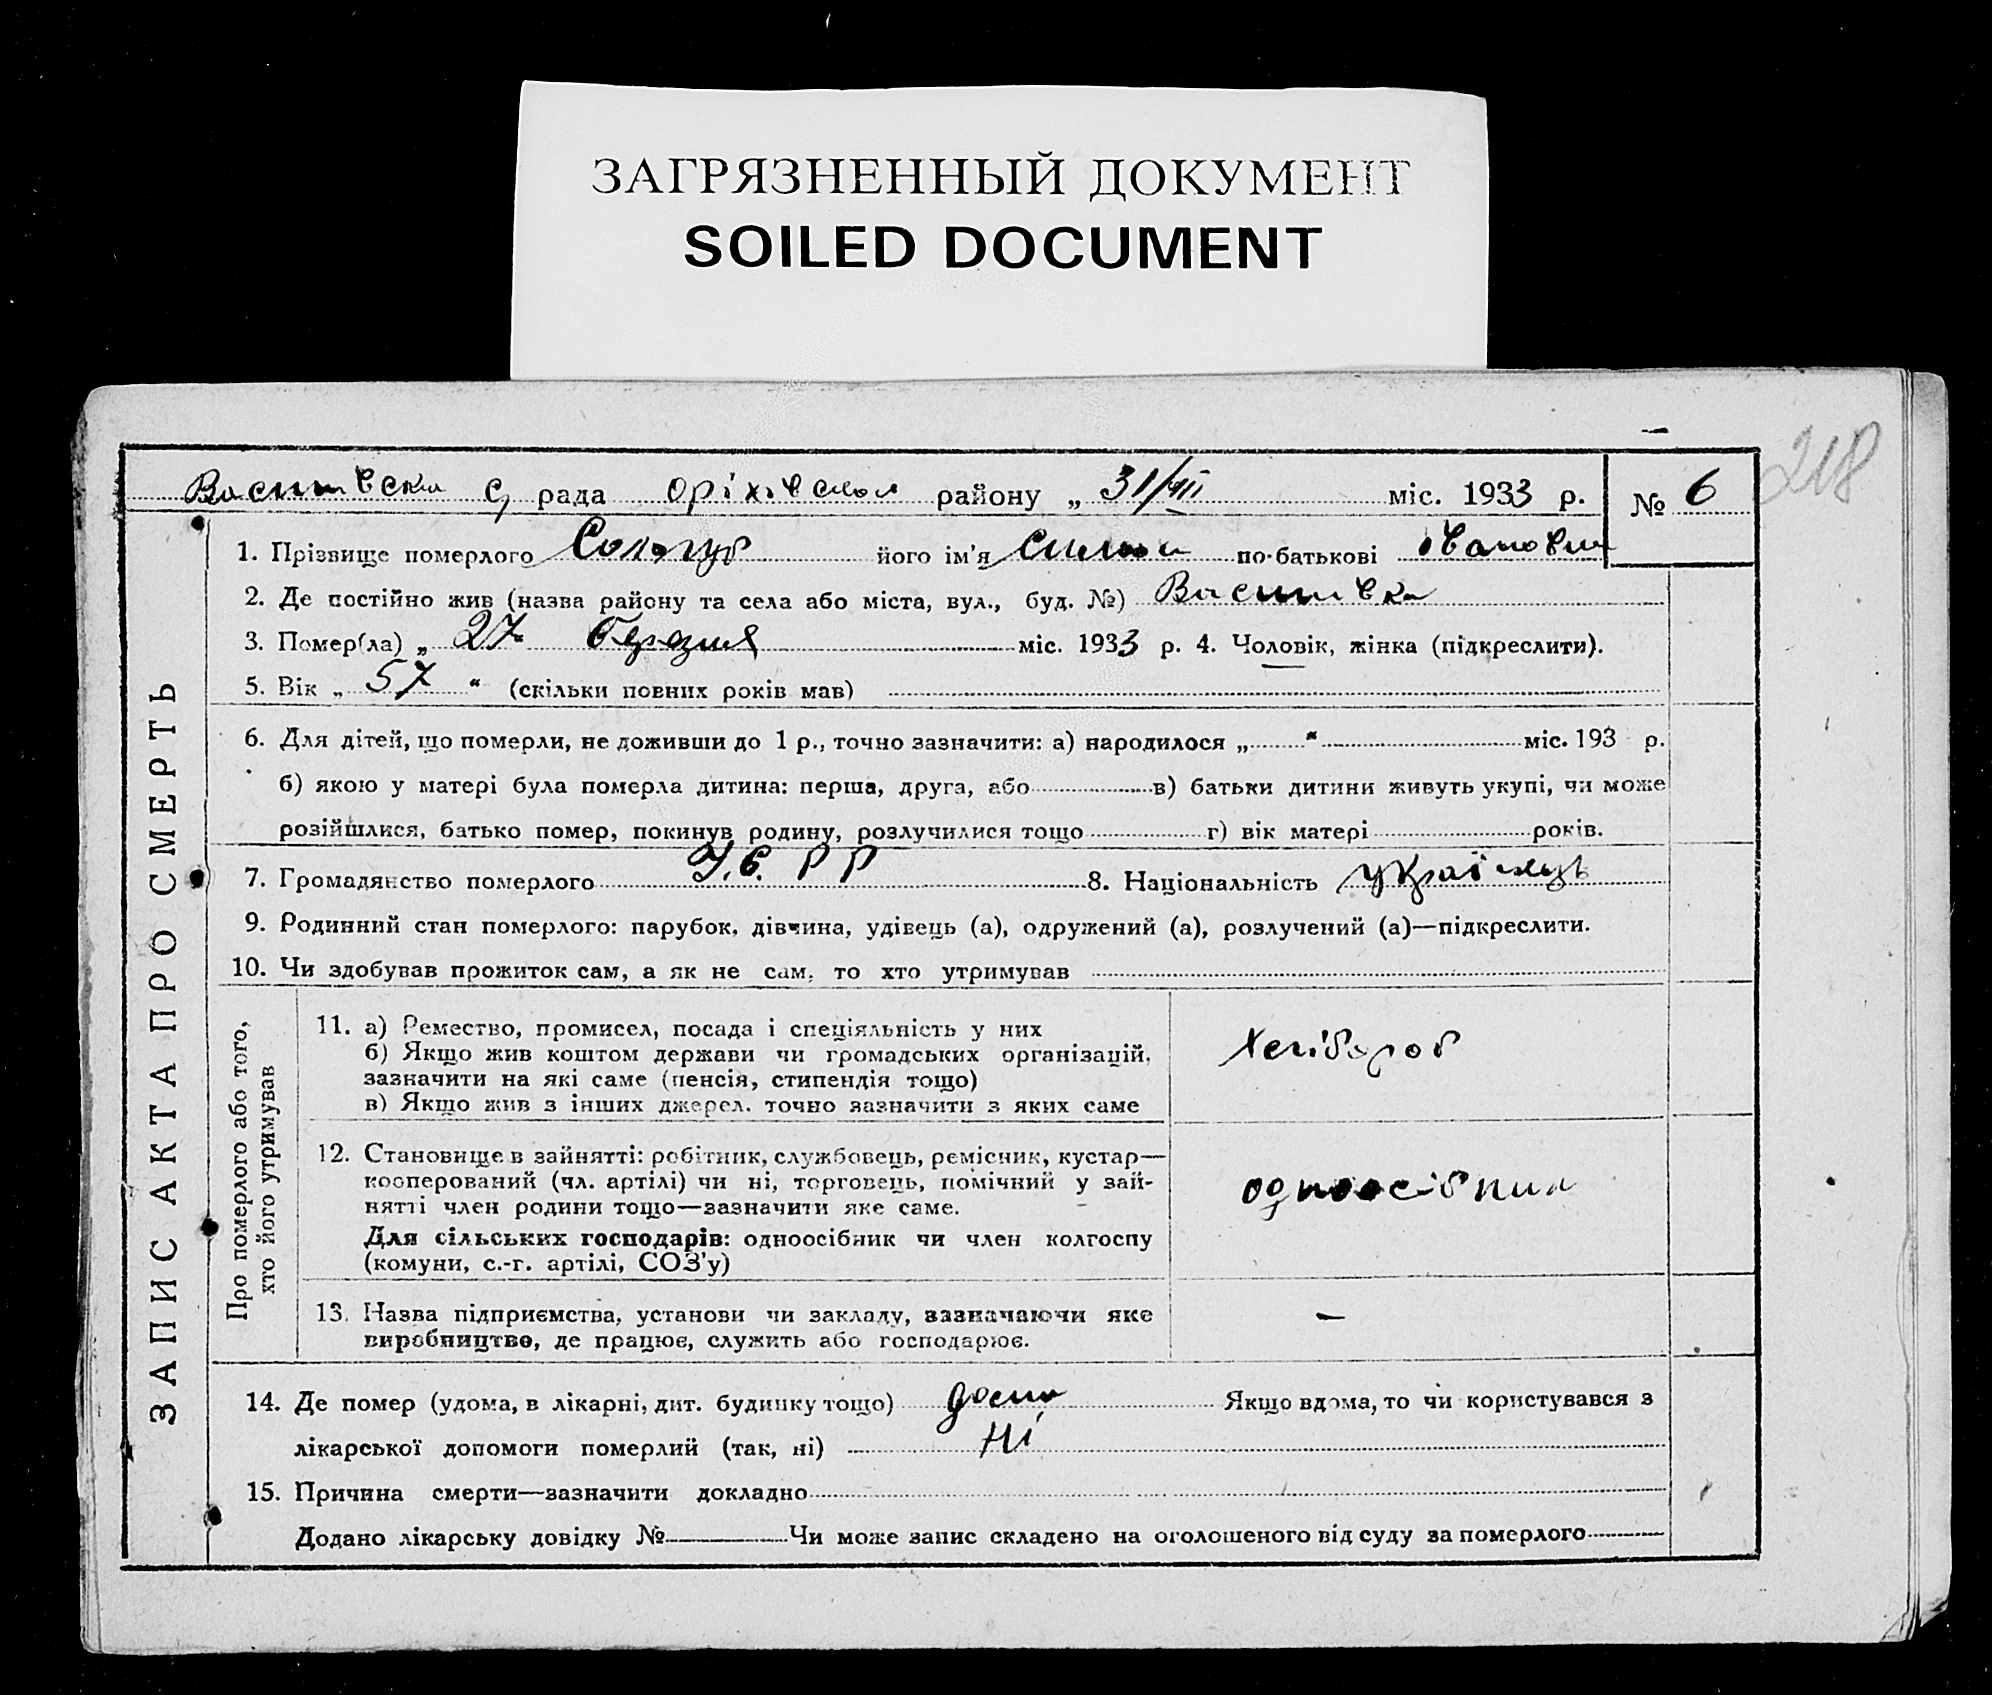 ЗАГРЯЗНЕННЫЙ ДОКУМЕНТ
SOILED DOCUMENT
218
с, рада оріхівском району „ 31/VII міс. 1933 р. № 6
1. Прізвище померлого Сологуб його ім'я по-батькові Iванович
2. Де постійно жив (назва району та села або міста, вул., буд. №)
3. Помер(ла) „ 27 міс. 1933 р. 4. Чоловік, жінка (підкреслити).
5. Вік „ 57 “ (скільки повних років мав)
6. Для дітей, що померли, не доживши до 1 р., точно зазначити: а) народилося „ “ міс. 193 р.
б) якою у матері була померла дитина: перша, друга, або в) батьки дитини живуть укупі, чи може
розійшлися, батько помер, покинув родину, розлучилися тощо г) вік матері років.
7. Громадянство померлого У.С.Р Р 8. Національність українець
9. Родинний стан померлого: парубок, дівчина, удівець (а), одружений (а), розлучений (а)—підкреслити.
10. Чи здобував прожиток сам, а як не сам, то хто утримував
ЗАПИС АКТА ПРО СМЕРТЬ
Про померлого або того,
хто його утримував
11. а) Ремество, промисел, посада і спеціяльність у них
б) Якщо жив коштом держави чи громадських організацій,
зазначити на які саме (пенсія, стипендія тощо)
в) Якщо жив з інших джерел. точно зазначити з яких саме
Хлібороб
12. Становище в зайнятті: робітник, службовець, ремісник, кустар—
кооперований (чл. артілі) чи ні, торговець, помічний у зай-
нятті член родини тощо—зазначити яке саме.
Для сільських господарів: одноосібник чи член колгоспу
(комуни, с.-г. артілі, СОЗ'у)
одноосібник
13. Назва підприємства, установи чи закладу, зазначаючи яке
виробництво, де працює, служить або господарює.
—
14. Де помер (удома, в лікарні, дит. будинку тощо) дома Якщо вдома, то чи користувався з
лікарської допомоги померлий (так, ні) Ні
15. Причина смерти—зазначити докладно
Додано лікарську довідку № Чи може запис складено на оголошеного від суду за померлого